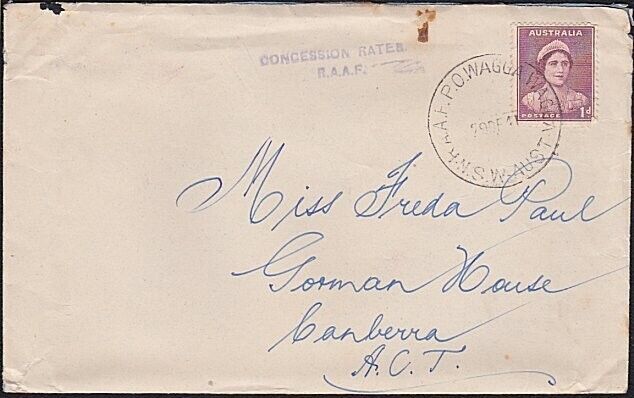 CONCESSION RATES
R.A.A.F.
AUSTRALIA
POSTAGE 1d
R.A.A.F. P.O. WAGGA N.S.W. AUST
Miss Freda Paul
Gorman House
Canberra
A.C.T.